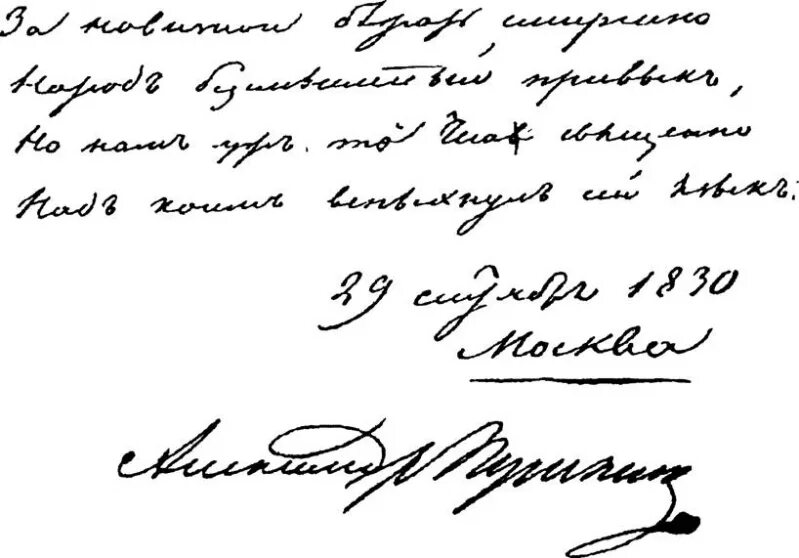 За новизной бѣгать смиренно
Народъ безсмысленный привыкъ,
Но намъ ужъ то чело священно
Надъ коимъ вспыхнулъ сей языкъ.
29 сентября 1830
Москва
Александръ Пушкинъ